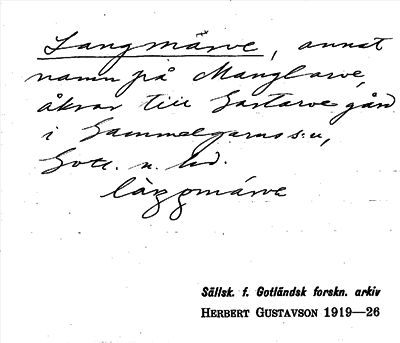 Langmärve, annat
namn på Manglarve,
åkrar till Gartarve gård
i Gammelgarns s:n,
Gotl. n. hd.
Sällsk. f. Gotländsk forskn. arkiv
HERBERT GUSTAVSON 1919—26